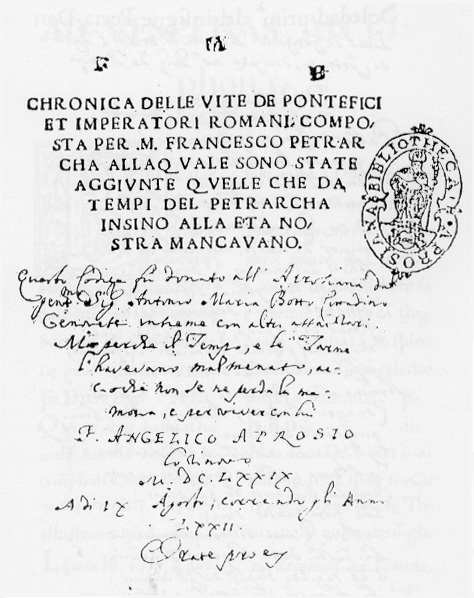 F A B
CHRONICA DELLE VITE DE PONTEFICI
ET IMPERATORI ROMANI. COMPO,
STA PER .M. FRANCESCO PETRAR
CHA ALLAQ VALE SONO STATE
AGGIVNTE Q VELLE CHE DA,
TEMPI DEL PETRARCHA
INSINO ALLA ETA NO,
STRA MANCAVANO.
BIBLIOTHECA APROSIANA
Questo Codice fù donato all' Aprosiana dal
Gent. Sig. Antonio Maria Botto Cittadino
Genovese insieme con altri
Ma perche il Tempo, e le Tarme
l'havevano malmenato, ac-
cioche non se ne perda la me-
moria, e per viver con lui
F. ANGELICO APROSIO
M. DC. LXXIX
A dì IX Agosto, correndo gli Anni
LXXII.